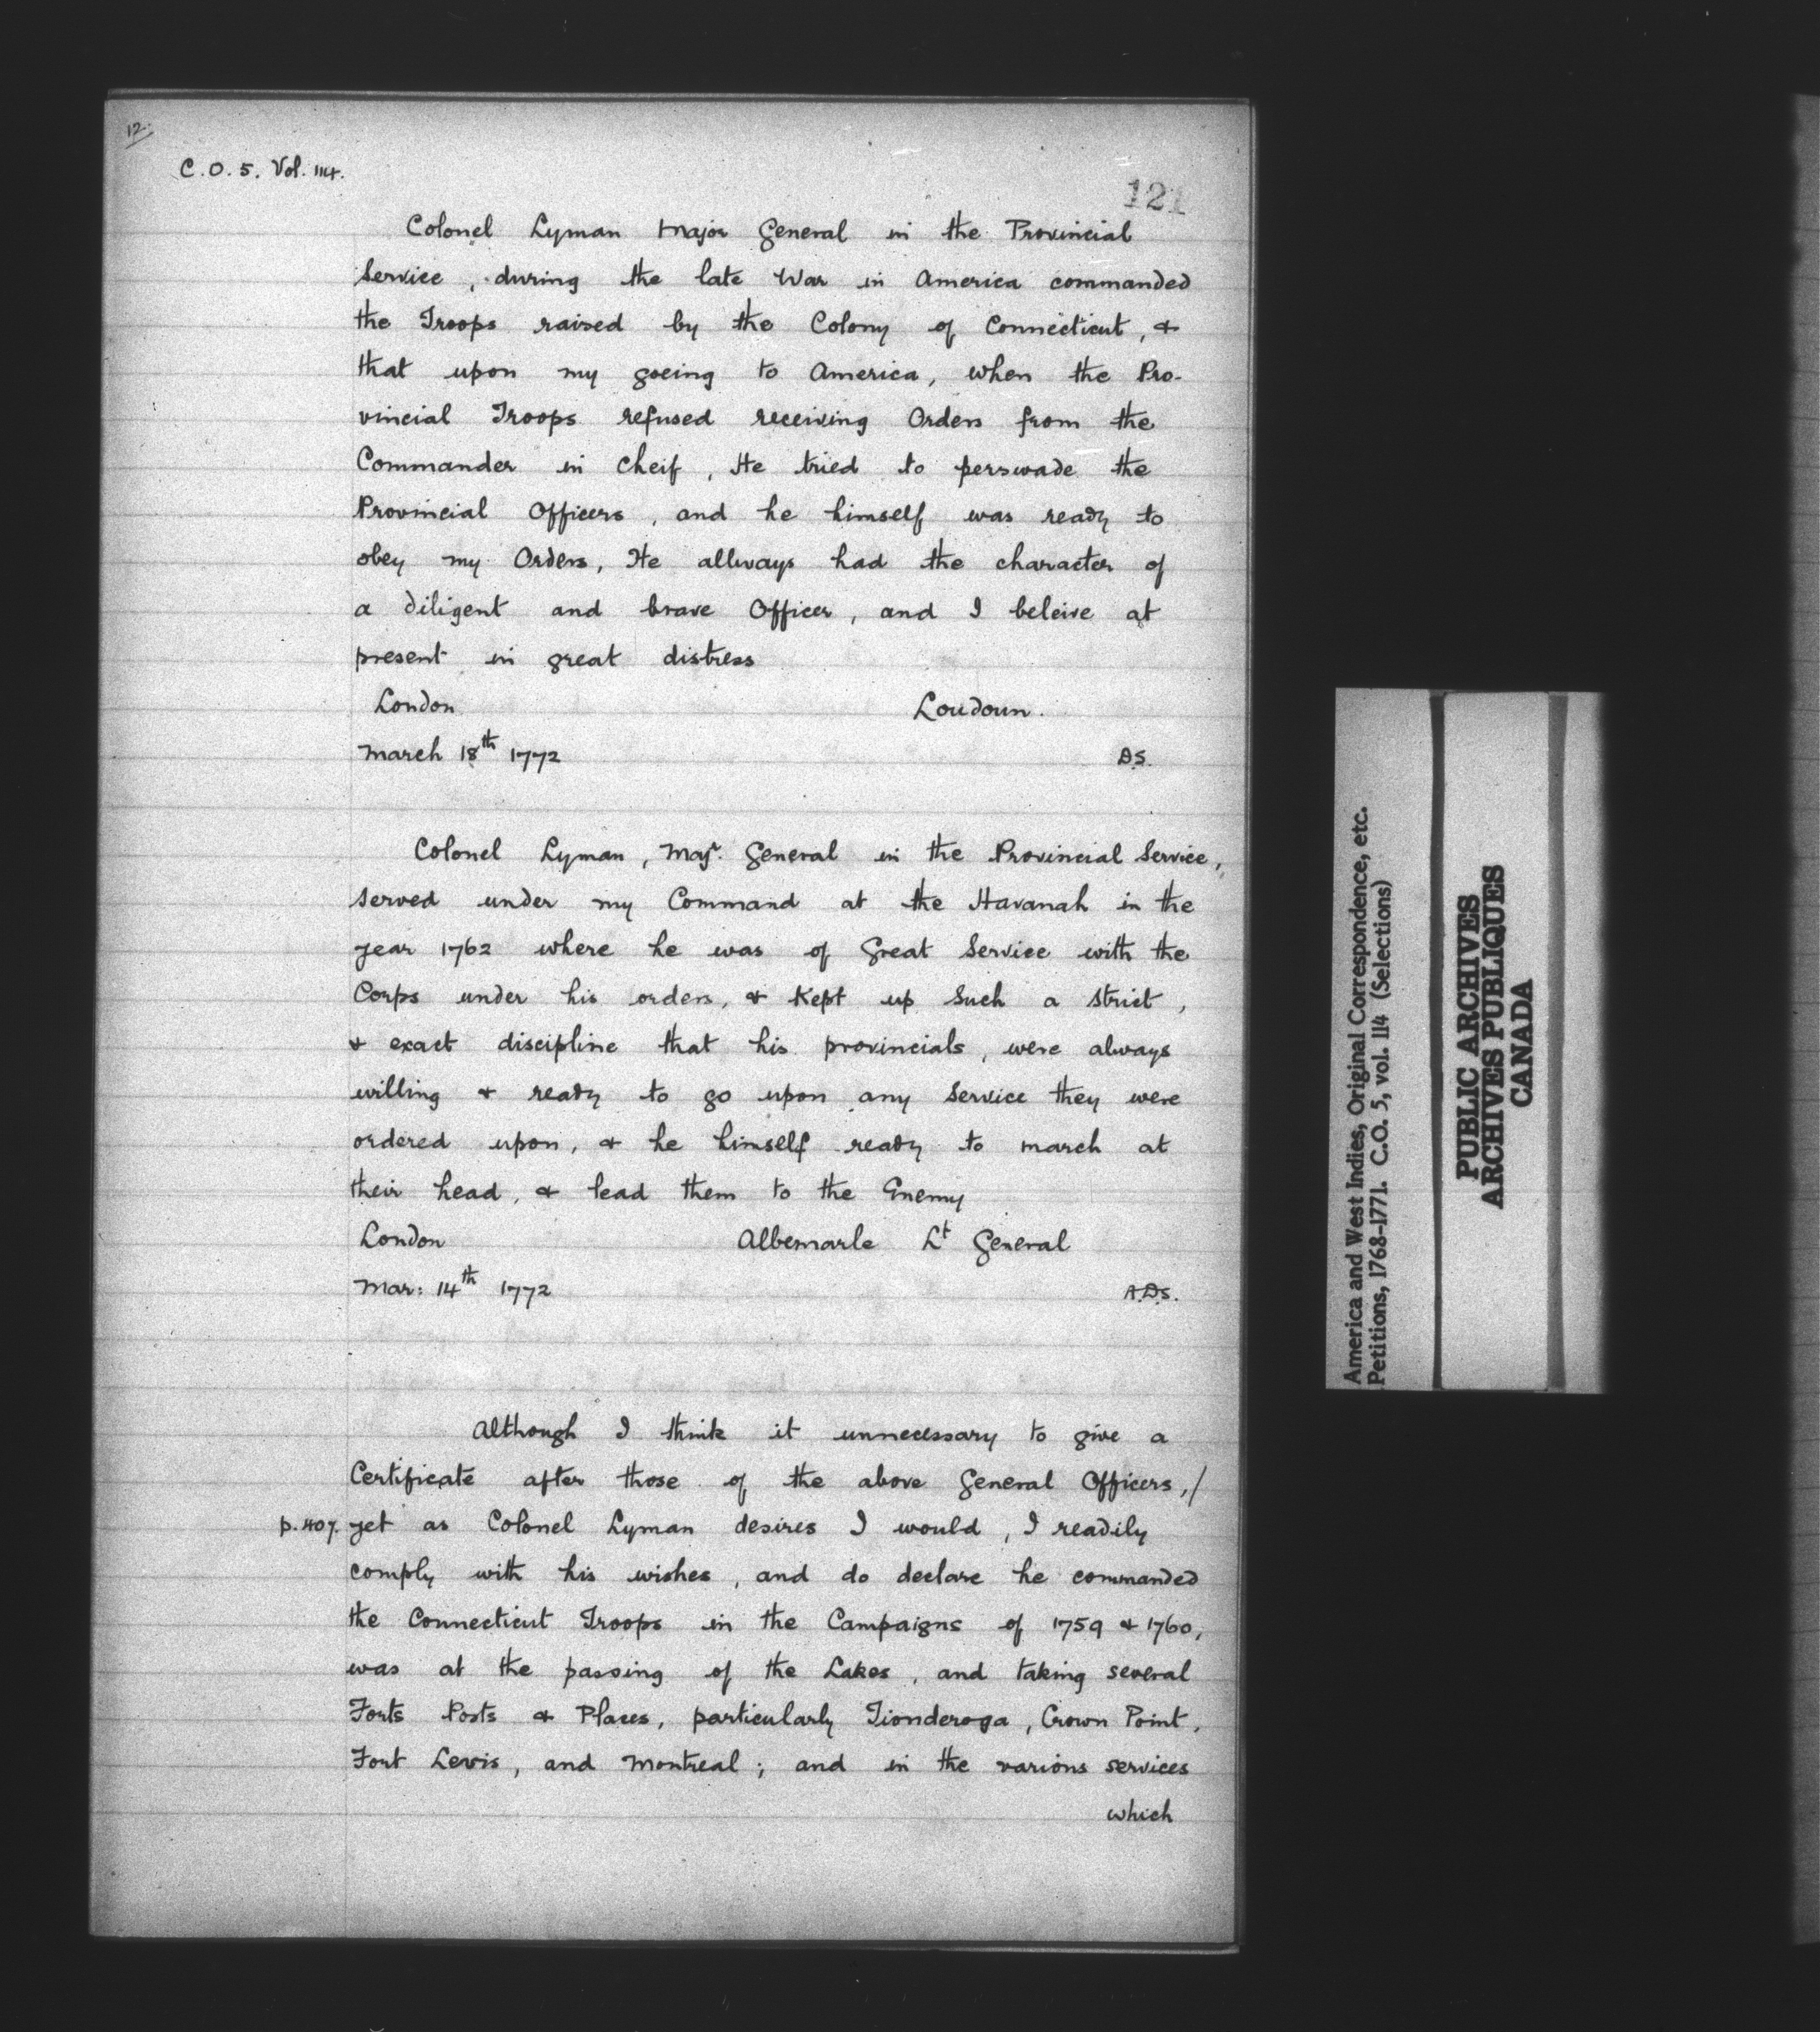 12.
C.O.5. Vol. 114.
121
Colonel Lyman Major General in the Provincial
Service, during the late War in America commanded
the Troops raised by the Colony of Connecticut, &
that upon my goeing to America, when the Pro-
vincial Troops refused receiving Orders from the
Commander in Cheif, He tried to perswade the
Provincial Officers, and he himself was ready to
obey my Orders, He allways had the character of
a diligent and brave Officer, and I beleive at
present in great distress
London Loudoun.
March 18th 1772 D.S.
Colonel Lyman, Majr. General in the Provincial Service,
served under my Command at the Havanah in the
year 1762 where he was of Great Service with the
Corps under his orders, & Kept up Such a strict,
& exact discipline that his provincials, were always
willing & ready to go upon any Service they were
ordered upon, & he himself ready to march at
their head, & lead them to the Enemy
London Albemarle Lt General
Mar: 14th 1772 A.D.S.
Although I think it unnecessary to give a
Certificate after those of the above General Officers,/
p.407. yet as Colonel Lyman desires I would, I readily
comply with his wishes, and do declare he commanded
the Connecticut Troops in the Campaigns of 1759 & 1760,
was at the passing of the Lakes, and taking several
Forts Posts & Places, particularly Tionderoga, Crown Point,
Fort Levis, and Montreal; and in the various services
which
America and West Indies, Original Correspondence, etc.
Petitions, 1768-1771. C.O. 5, vol. 114 (Selections)
PUBLIC ARCHIVES
ARCHIVES PUBLIQUES
CANADA